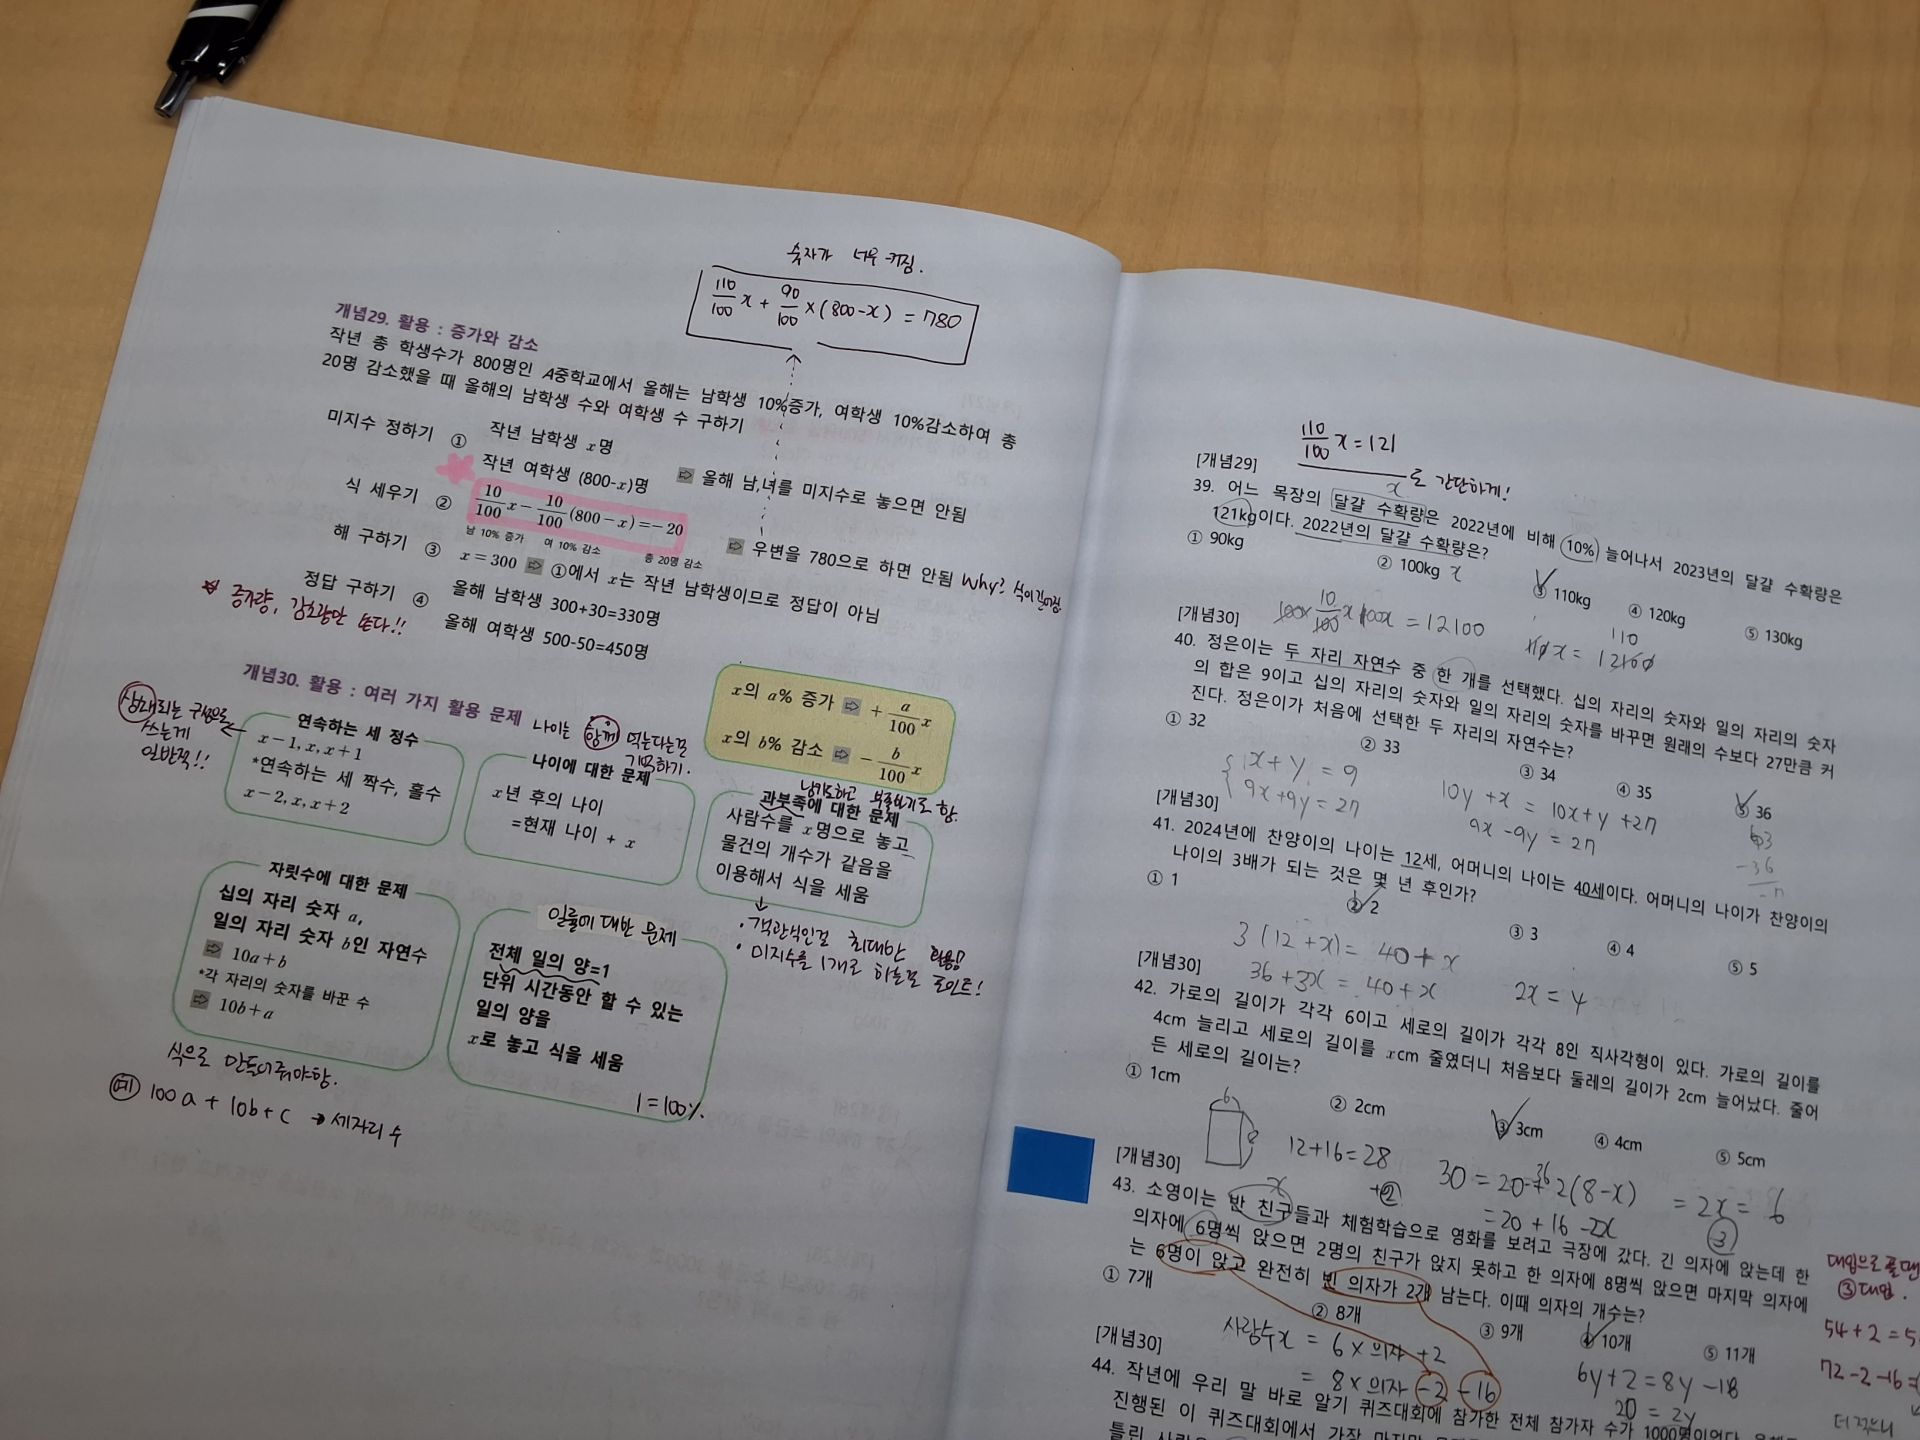 숫자가 너무 커짐.
110/100 x + 90/100 ×(800-x) = 780
개념29. 활용 : 증가와 감소
작년 총 학생수가 800명인 A중학교에서 올해는 남학생 10%증가, 여학생 10%감소하여 총
20명 감소했을 때 올해의 남학생 수와 여학생 수 구하기
미지수 정하기 ① 작년 남학생 x명
작년 여학생 (800-x)명 ⇨ 올해 남,녀를 미지수로 놓으면 안됨
식 세우기 ② 10/100 x - 10/100 (800-x) = -20
남 10% 증가 여 10% 감소 총 20명 감소
⇨ 우변을 780으로 하면 안됨 Why? 식이 길어짐.
해 구하기 ③ x=300 ⇨ ①에서 x는 작년 남학생이므로 정답이 아님
정답 구하기 ④ 올해 남학생 300+30=330명
올해 여학생 500-50=450명
증가량, 감소량만 쓴다!!
개념30. 활용 : 여러 가지 활용 문제
x의 a% 증가 ⇨ + a/100 x
x의 b% 감소 ⇨ - b/100 x
쓰는게
일반적!!
연속하는 세 정수
x-1, x, x+1
*연속하는 세 짝수, 홀수
x-2, x, x+2
나이는 함께 먹는다는걸
기억하기.
나이에 대한 문제
x년 후의 나이
=현재 나이 + x
과부족에 대한 문제
사람수를 x명으로 놓고
물건의 개수가 같음을
이용해서 식을 세움
· 객관식인걸 최대한 활용!!
· 미지수를 1개로 하는걸 포인트!
자릿수에 대한 문제
십의 자리 숫자 a,
일의 자리 숫자 b인 자연수
⇨ 10a+b
*각 자리의 숫자를 바꾼 수
⇨ 10b+a
식으로 만들어줘야함.
예) 100a + 10b + c → 세자리 수
일률에 대한 문제
전체 일의 양=1
단위 시간동안 할 수 있는
일의 양을
x로 놓고 식을 세움
1=100%
110/100 x = 121
x로 간단하게!
[개념29]
39. 어느 목장의 달걀 수확량은 2022년에 비해 10% 늘어나서 2023년의 달걀 수확량은
121kg이다. 2022년의 달걀 수확량은?
① 90kg ② 100kg ③ 110kg ④ 120kg ⑤ 130kg
x
= 12100
[개념30]
40. 정은이는 두 자리 자연수 중 한 개를 선택했다. 십의 자리의 숫자와 일의 자리의 숫자
의 합은 9이고 십의 자리의 숫자와 일의 자리의 숫자를 바꾸면 원래의 수보다 27만큼 커
진다. 정은이가 처음에 선택한 두 자리의 자연수는?
① 32 ② 33 ③ 34 ④ 35 ⑤ 36
x+y = 9
9x+9y = 27
10y + x = 10x + y + 27
9x - 9y = 27
63
-36
[개념30]
41. 2024년에 찬양이의 나이는 12세, 어머니의 나이는 40세이다. 어머니의 나이가 찬양이의
나이의 3배가 되는 것은 몇 년 후인가?
① 1 ② 2 ③ 3 ④ 4 ⑤ 5
3(12+x) = 40+x
36+3x = 40+x
2x = 4
[개념30]
42. 가로의 길이가 각각 6이고 세로의 길이가 각각 8인 직사각형이 있다. 가로의 길이를
4cm 늘리고 세로의 길이를 xcm 줄였더니 처음보다 둘레의 길이가 2cm 늘어났다. 줄어
든 세로의 길이는?
① 1cm ② 2cm ③ 3cm ④ 4cm ⑤ 5cm
6
12+16=28
+2
30 = 20+2(8-x)
= 20+16-2x
= 2x = 6
3
[개념30]
43. 소영이는 반 친구들과 체험학습으로 영화를 보려고 극장에 갔다. 긴 의자에 앉는데 한
의자에 6명씩 앉으면 2명의 친구가 앉지 못하고 한 의자에 8명씩 앉으면 마지막 의자에
는 6명이 앉고 완전히 빈 의자가 2개 남는다. 이때 의자의 개수는?
① 7개 ② 8개 ③ 9개 ④ 10개 ⑤ 11개
x
사람수x = 6×의자+2
= 8×의자-2-16
6y+2=8y-18
20=2y
③대입.
54+2=5
72-2-16=
[개념30]
44. 작년에 우리 말 바로 알기 퀴즈대회에 참가한 전체 참가자 수가 1000명이었다.
진행된 이 퀴즈대회에서 가장 마지막
틀린 사람은